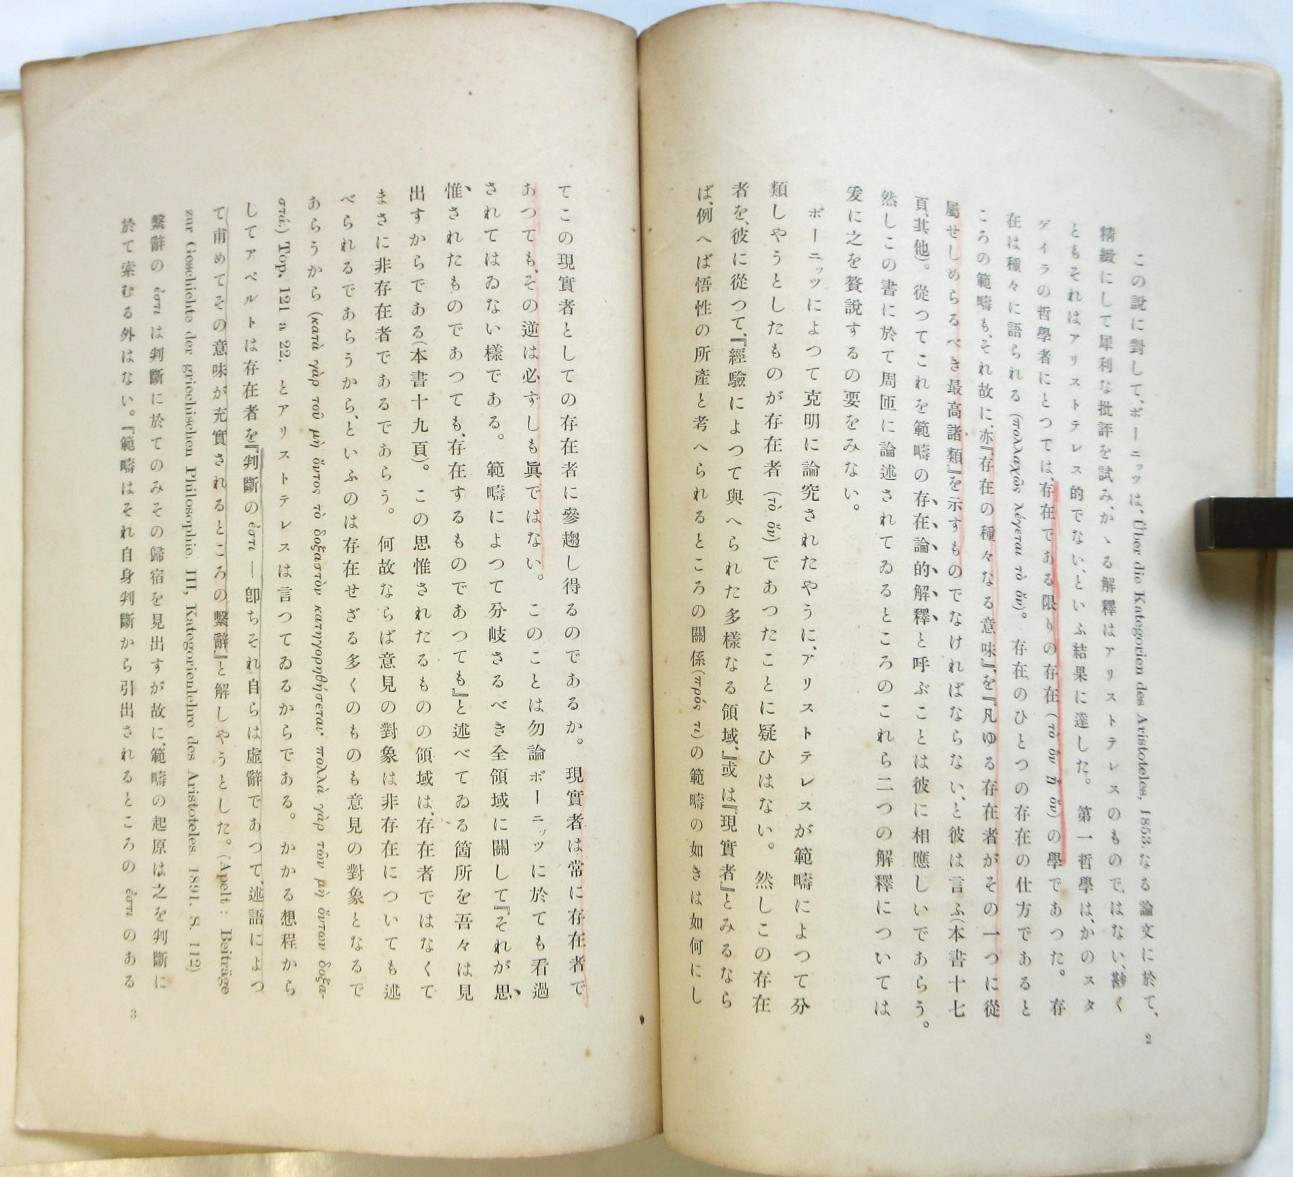 この說に對して、ボーニッツは、Über die Kategorien des Aristoteles, 1853. なる論文に於て、
精緻にして犀利な批評を試み、かゝる解釋はアリストテレスのものではない、尠く
ともそれはアリストテレス的でない、といふ結果に達した。 第一哲學は、かのスタ
ゲイラの哲學者にとつては、存在である限りの存在 (τὸ ὂν ᾗ ὄν) の學であつた。 存
在は種々に語られる (πολλαχῶς λέγεται τὸ ὄν)。 存在のひとつの存在の仕方であると
ころの範疇も、それ故に、亦『存在の種々なる意味』を『凡ゆる存在者がその一つに從
屬せしめらるべき最高諸類』を示すものでなければならない、と彼は言ふ(本書十七
頁、其他)。 從つてこれを範疇の存在論的解釋と呼ぶことは彼に相應しいであらう。
然しこの書に於て周匝に論述されてゐるところのこれら二つの解釋については
爰に之を贅說するの要をみない。
ボーニッツによつて克明に論究されたやうに、アリストテレスが範疇によつて分
類しやうとしたものが存在者 (τὸ ὄν) であつたことに疑ひはない。 然しこの存在
者を、彼に從つて、『經驗によつて與へられた多樣なる領域、』或は『現實者』とみるなら
ば、例へば悟性の所產と考へられるところの關係 (πρός τι) の範疇の如きは如何にし
2
てこの現實者としての存在者に參趨し得るのであるか。 現實者は常に存在者で
あつても、その逆は必ずしも眞ではない。 このことは勿論ボーニッツに於ても看過
されてはゐない樣である。 範疇によつて分岐さるべき全領域に關して『それが思
惟されたものであつても、存在するものであつても』と述べてゐる箇所を吾々は見
出すからである(本書十九頁)。 この思惟されたるものの領域は、存在者ではなくて
まさに非存在者であるであらう。 何故ならば意見の對象は非存在についても述
べられるであらうから、といふのは存在せざる多くのものも意見の對象となるで
あらうから (κατὰ γὰρ τοῦ μὴ ὄντος τὸ δοξαστὸν κατηγορηθήσεται· πολλὰ γὰρ τῶν μὴ ὄντων δοξα-
στά) Top. 121 a 22. とアリストテレスは言つてゐるからである。 かかる想程から
してアペルトは存在者を『判斷の ἐστι — 卽ちそれ自らは虛辭であつて、述語によつ
て甫めてその意味が充實されるところの繫辭』と解しやうとした。(Apelt: Beiträge
zur Geschichte der griechischen Philosophie. III, Kategorienlehre des Aristoteles. 1891. S. 112)
繫辭の ἐστι は判斷に於てのみその歸宿を見出すが故に、範疇の起原は之を判斷に
於て索むる外はない。『範疇はそれ自身判斷から引出されるところの ἐστι のある
3